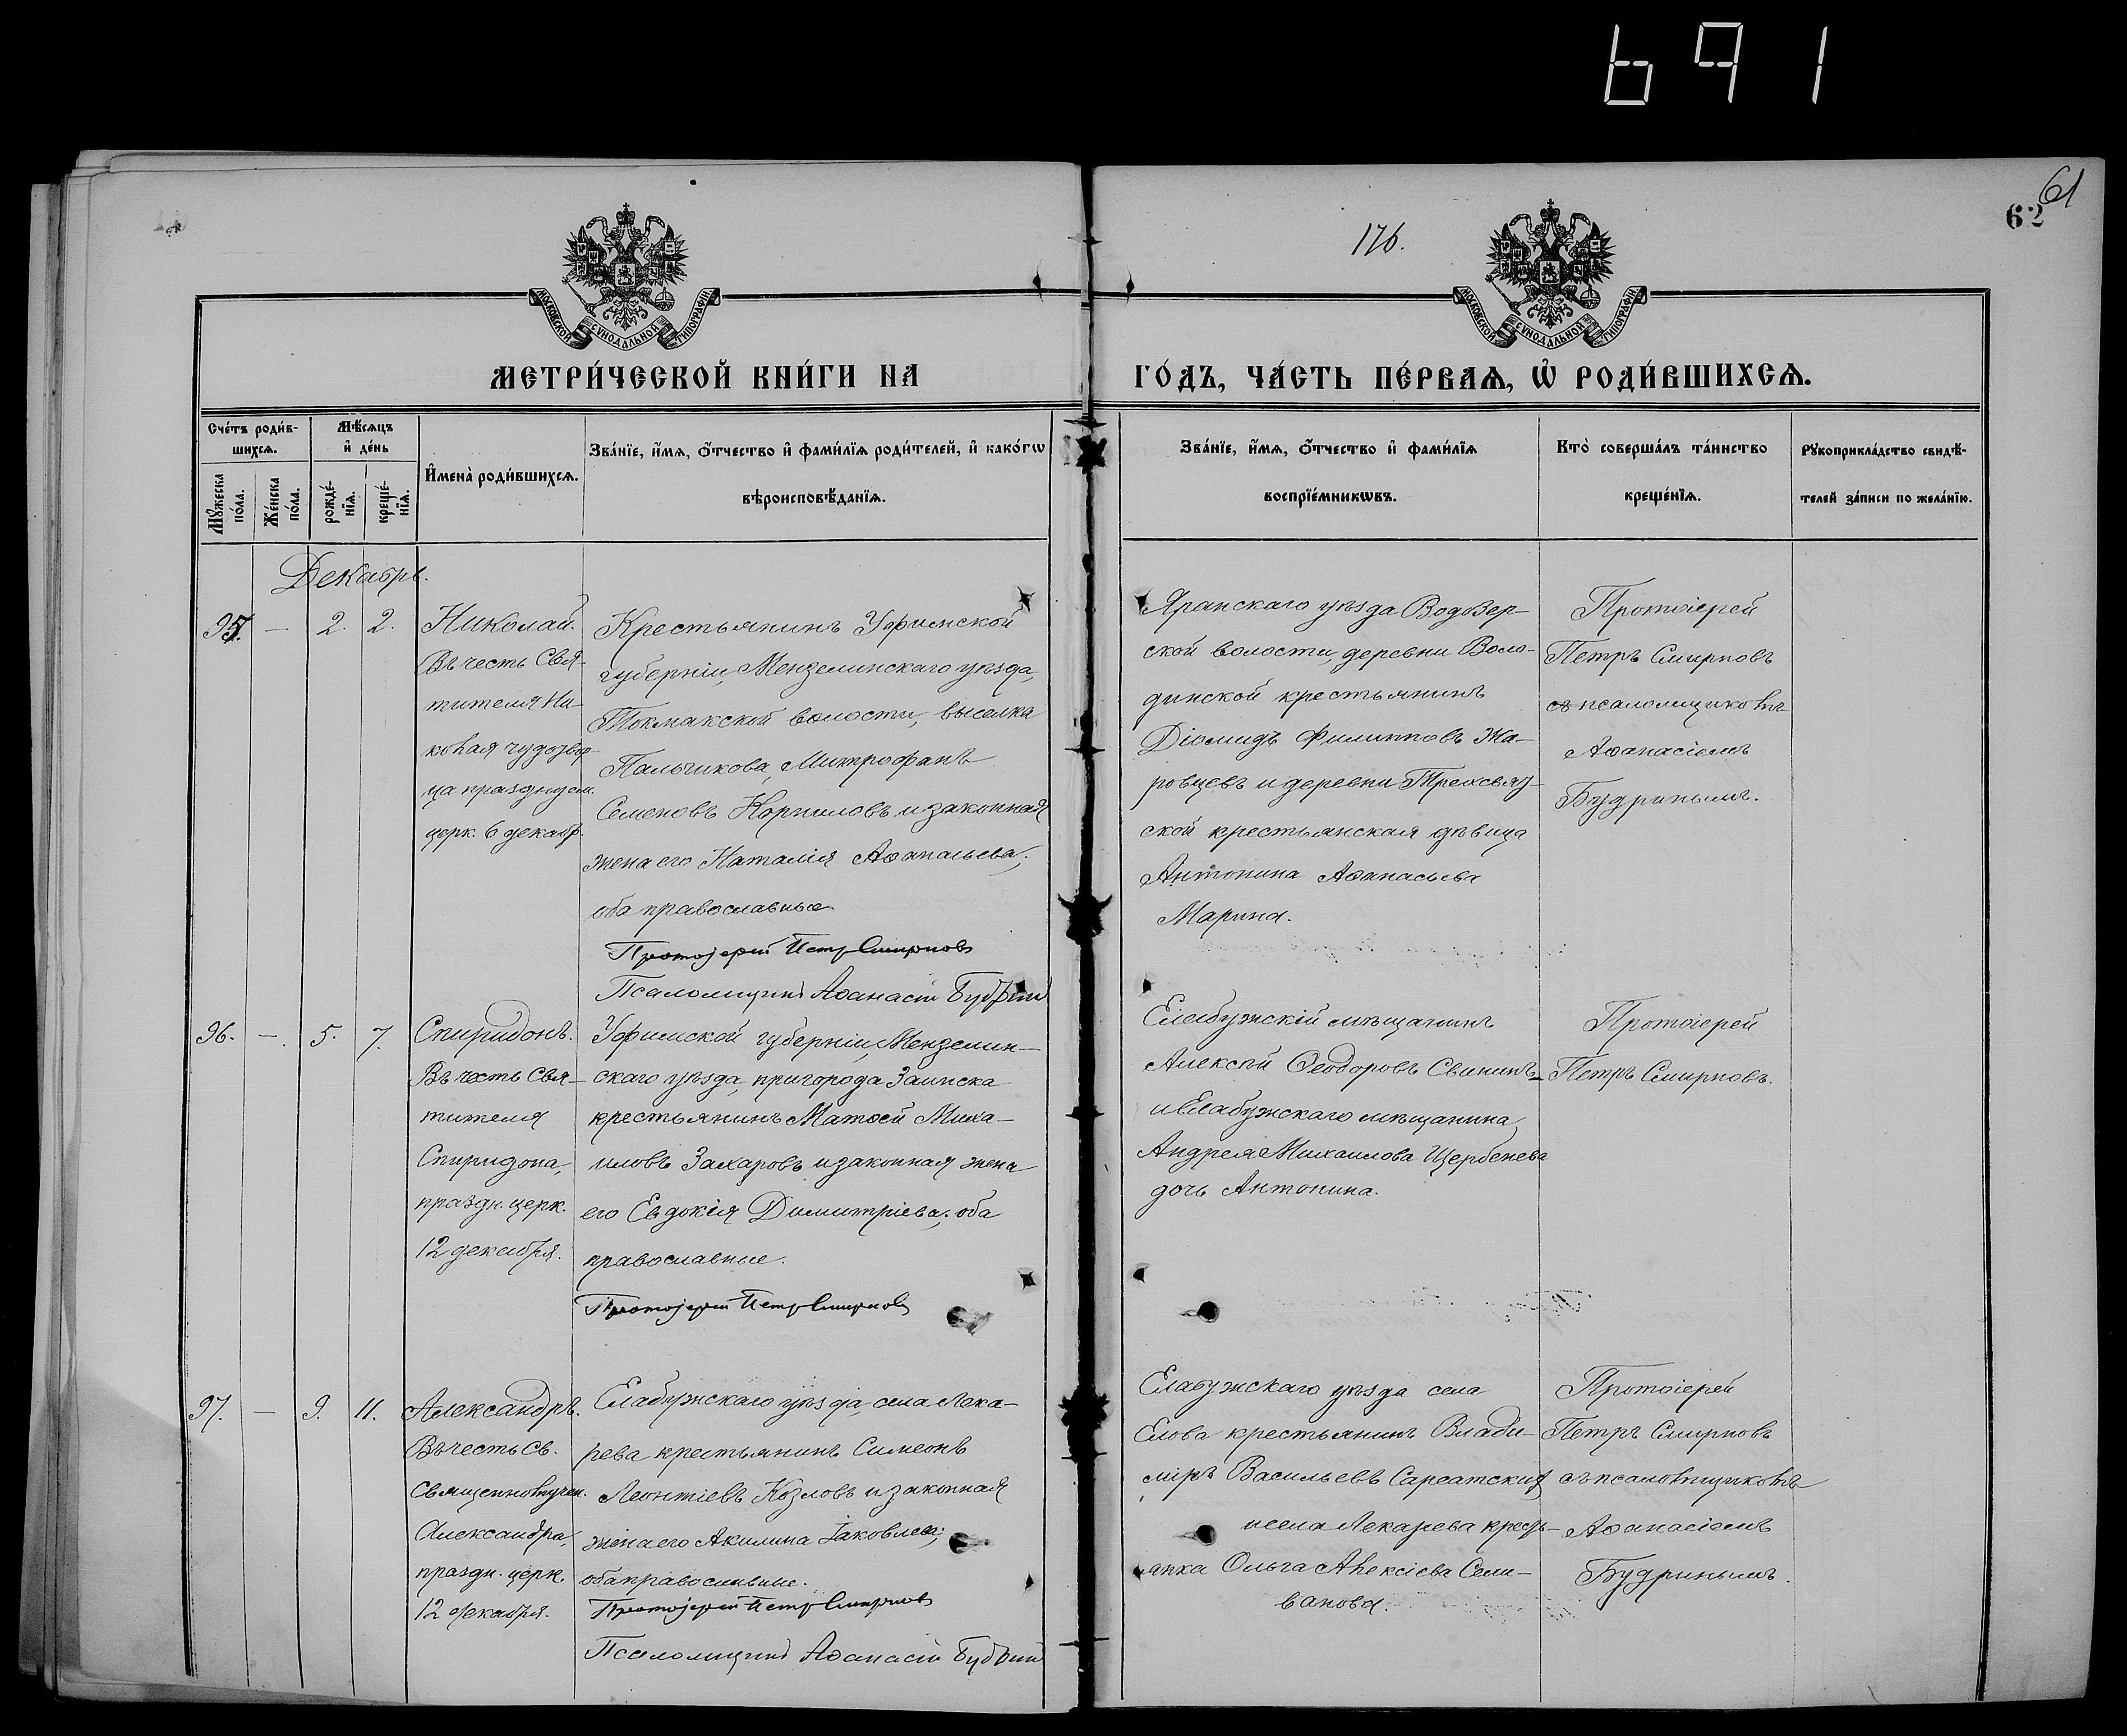 691
61
62
176.
МОСКОВСКОЙ СУНОДАЛЬНОЙ ТИПОГРАФІИ
МОСКОВСКОЙ СУНОДАЛЬНОЙ ТИПОГРАФІИ
МЕТРИ́ЧЕСКОЙ КНИ́ГИ НА ГО́ДЪ, ЧА́СТЬ ПЕ́РВАѦ, Ѽ РОДИ́ВШИХСѦ.
Сче́тъ роди́в-
шихсѧ.
Мꙋ́жеска по́ла.
Же́нска по́ла.
Мѣ́сѧцъ и҆ де́нь
рожде́-
нїѧ.
креще́-
нїѧ.
И҆мена̀ роди́вшихсѧ.
Зва́нїе, и҆́мѧ, ѻ҆́тчество и҆ фами́лїѧ роди́телей, и҆ како́гѡ
вѣроисповѣ́данїѧ.
Зва́нїе, и҆́мѧ, ѻ҆́тчество и҆ фами́лїѧ
воспрїе́мникѡвъ.
Кто̀ соверша́лъ та́инство
креще́нїѧ.
Рꙋкоприкла́дство свидѣ́-
телей за́писи по жела́нїю.
Декабрь.
95. — 2. 2.
Николай.
Въ честь Свя-
тителя Ни-
колая чудотвор-
ца празднуем.
церк. 6 декабр.
Крестьянинъ Уфимской
губерніи, Мензелинскаго уѣзда,
Токмакской волости, выселка
Пальчикова, Митрофанъ
Семеновъ Корниловъ и законная
жена его Наталія Аѳанасьева,
оба православные.
Протоіерей Петръ Смирновъ
Псаломщикъ Аѳанасій Будринъ
Яранскаго уѣзда
ской волости, деревни Воло-
динской крестьянинъ
Діомидъ Филипповъ Жа-
ровцевъ и деревни Трехсвят-
ской крестьянская дѣвица
Антонина Аѳанасьева
Марина.
Протоіерей
Петръ Смирновъ
съ псаломщикомъ
Аѳанасіемъ
Будринымъ.
96. — 5. 7.
Спиридонъ.
Въ честь Свя-
тителя
Спиридона,
праздн. церк.
12 декабря.
Уфимской губерніи, Мензелин-
скаго уѣзда, пригорода Заинска
крестьянинъ Матѳей Миха-
иловъ Захаровъ и законная жена
его Евдокія Димитріева; оба
православные.
Протоіерей Петръ Смирновъ
Елабужскій мѣщанинъ
Алексѣй Ѳеодоровъ Свининъ
и Елабужскаго мѣщанина
Андрея Михаилова Щербенева
дочь Антонина.
Протоіерей
Петръ Смирновъ.
97. — 9. 11.
Александръ.
Въ честь св.
священномучен.
Александра,
праздн. церк.
12 декабря.
Елабужскаго уѣзда, села Лека-
рева крестьянинъ Симеонъ
Леонтіевъ Козловъ и законная
жена его Акилина Іаковлева;
оба православные.
Протоіерей Петръ Смирновъ
Псаломщикъ Аѳанасій Будринъ
Елабужскаго уѣзда села
Елова крестьянинъ Влади-
міръ Васильевъ
и села Лекарева кресть-
янка Ольга Алексіева Сели-
ванова.
Протоіерей
Петръ Смирновъ
съ псаломщикомъ
Аѳанасіемъ
Будринымъ.